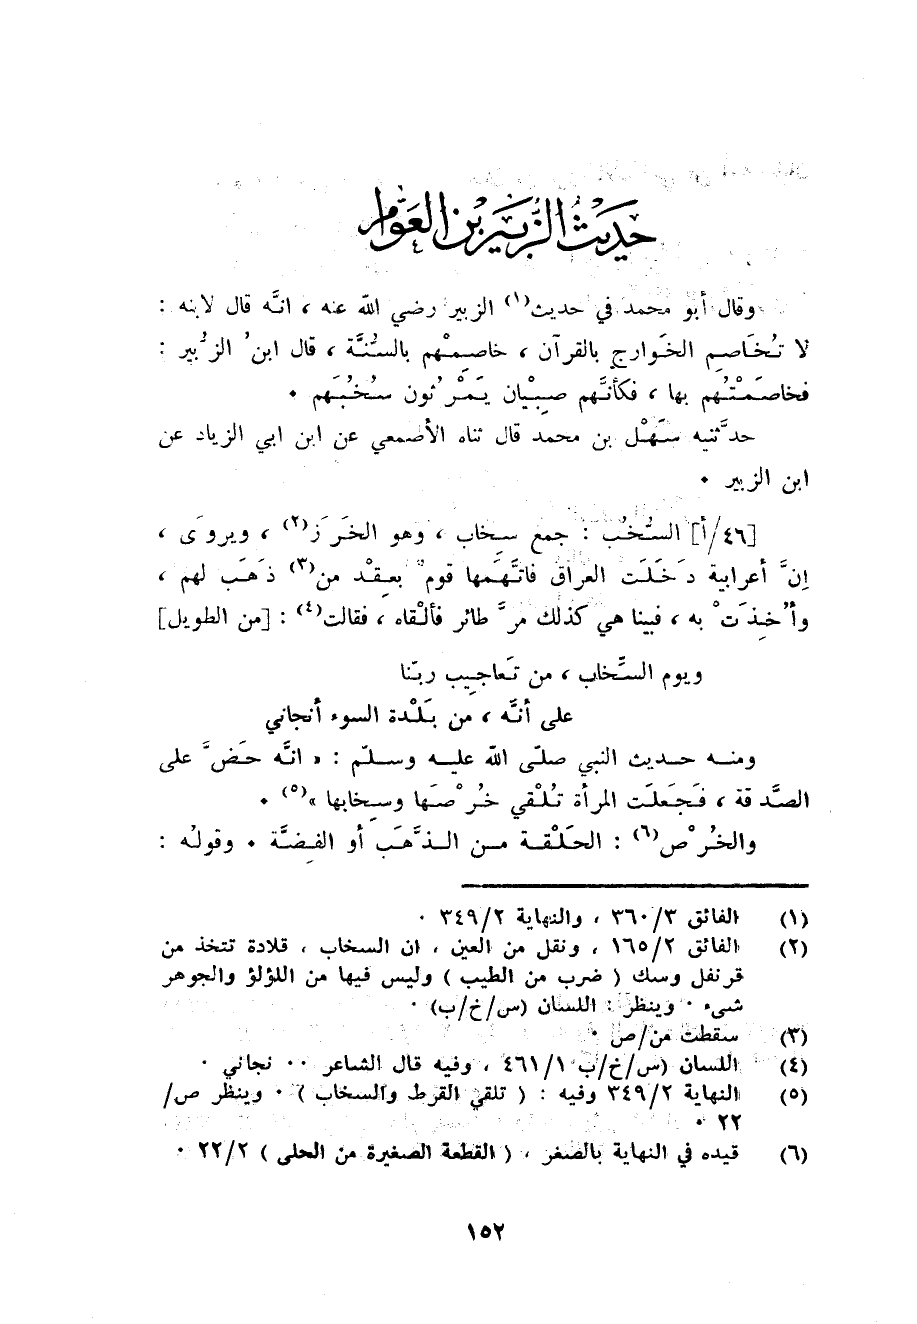 حديث الزُّبير بن العَوّام
وقال أبو محمد في حديث(١) الزبير رضي الله عنه ، انَّه قال لابنه :
لا تُخَاصِم الخَوارج بالقرآن ، خاصِمْهم بالسُّنَّة ، قال ابنُ الزُّبير :
فخاصَمْتُهم بها ، فكأنَّهم صِبْيان يَمَرْثون سُخُبَهم .
حدَّثنيه سَهْل بن محمد قال ثناه الأصْمعي عن ابن ابي الزياد عن
ابن الزبير .
[٤٦/أ] السُّخُب : جمع سِخاب ، وهو الخَرَز(٢) ، ويروَى ،
إنَّ أعرابية دَخَلَت العراق فاتَّهَمها قوم بعِقْد من(٣) ذَهَب لهم ،
وأُخِذَتْ به ، فبينا هي كذلك مرَّ طائر فألْقاه ، فقالت(٤) : [من الطويل]
ويوم السِّخاب ، من تَعاجِيب ربّنا
على أنَّه ، من بَلْدة السوء أنجاني
ومنه حديث النبي صلّى الله عليه وسلّم : « انَّه حَضَّ على
الصَّدقة ، فَجَعلَت المرأة تُلْقي خُرْصَها وسِخابها »(٥) .
والخُرْص(٦) : الحَلْقة من الذَّهَب أو الفِضَّة . وقولُه :
(١) الفائق ٣٦٠/٣ ، والنهاية ٣٤٩/٢ .
(٢) الفائق ١٦٥/٢ ، ونقل من العين ، ان السخاب ، قلادة تتخذ من
قرنفل وسك ( ضرب من الطيب ) وليس فيها من اللؤلؤ والجوهر
شيء . وينظر : اللسان (س/خ/ب) .
(٣) سقطت من/ص .
(٤) اللسان (س/خ/ب ٤٦١/١ ، وفيه قال الشاعر .. نجاني .
(٥) النهاية ٣٤٩/٢ وفيه : ( تلقي القرط والسخاب ) . وينظر ص/
٢٢ .
(٦) قيده في النهاية بالصغر ، ( القطعة الصغيرة من الحلى ) ٢٢/٢ .
١٥٢